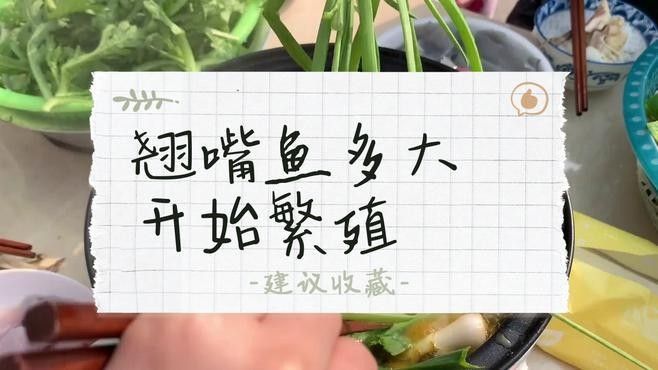 翘嘴鱼多大
开始繁殖
-建议收藏-